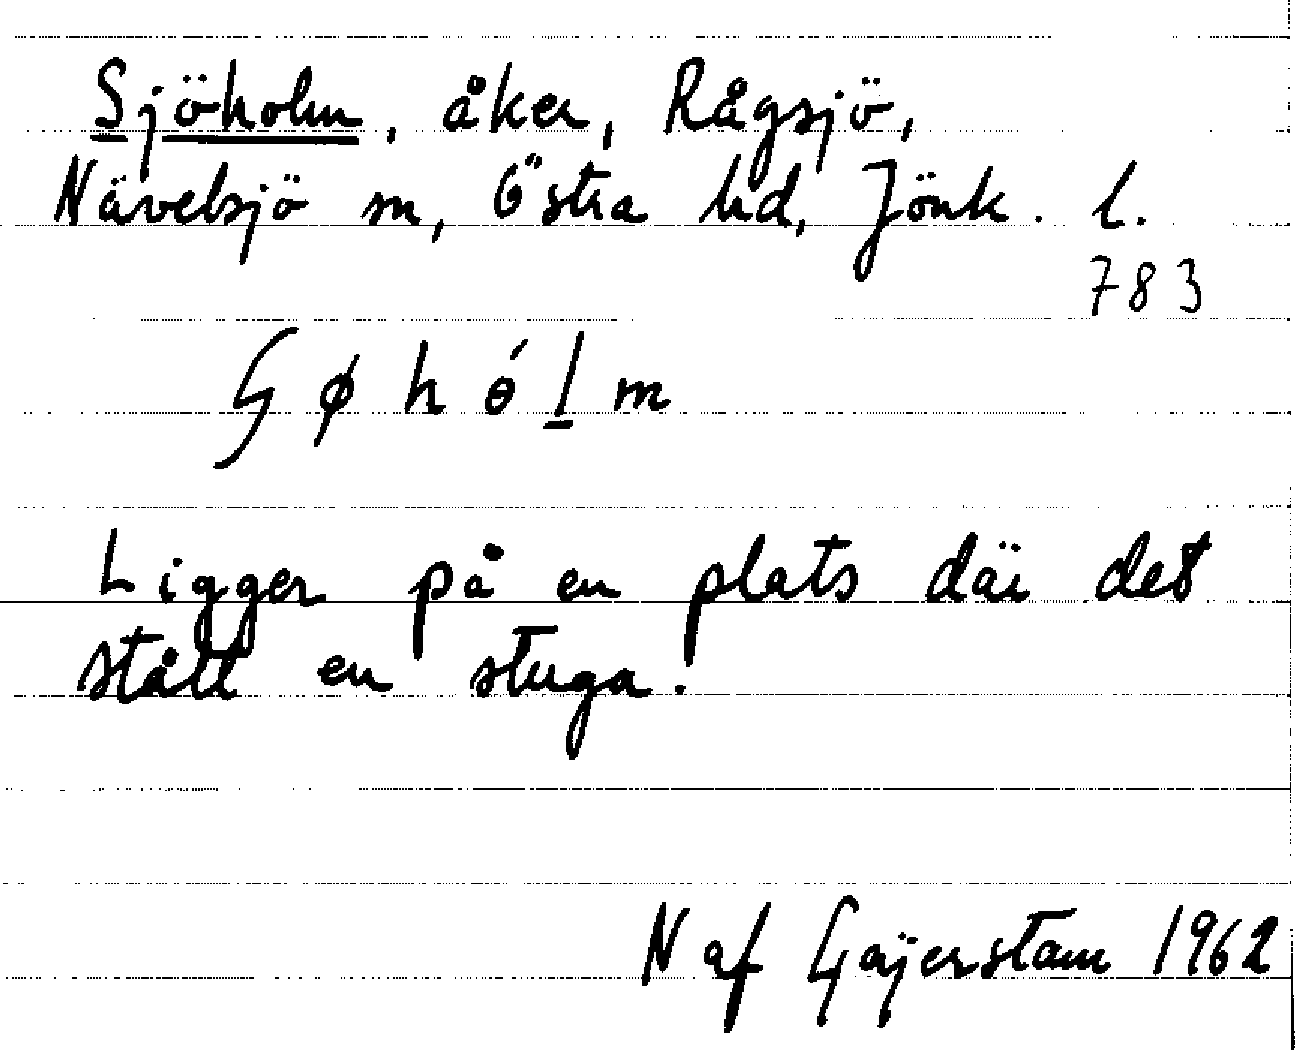 Sjöholm, åker, Rågsjö,
Nävelsjö sn, Östra hd, Jönk. l.
783
Ligger på en plats där det
stått en stuga.
N af Gajerstam 1962